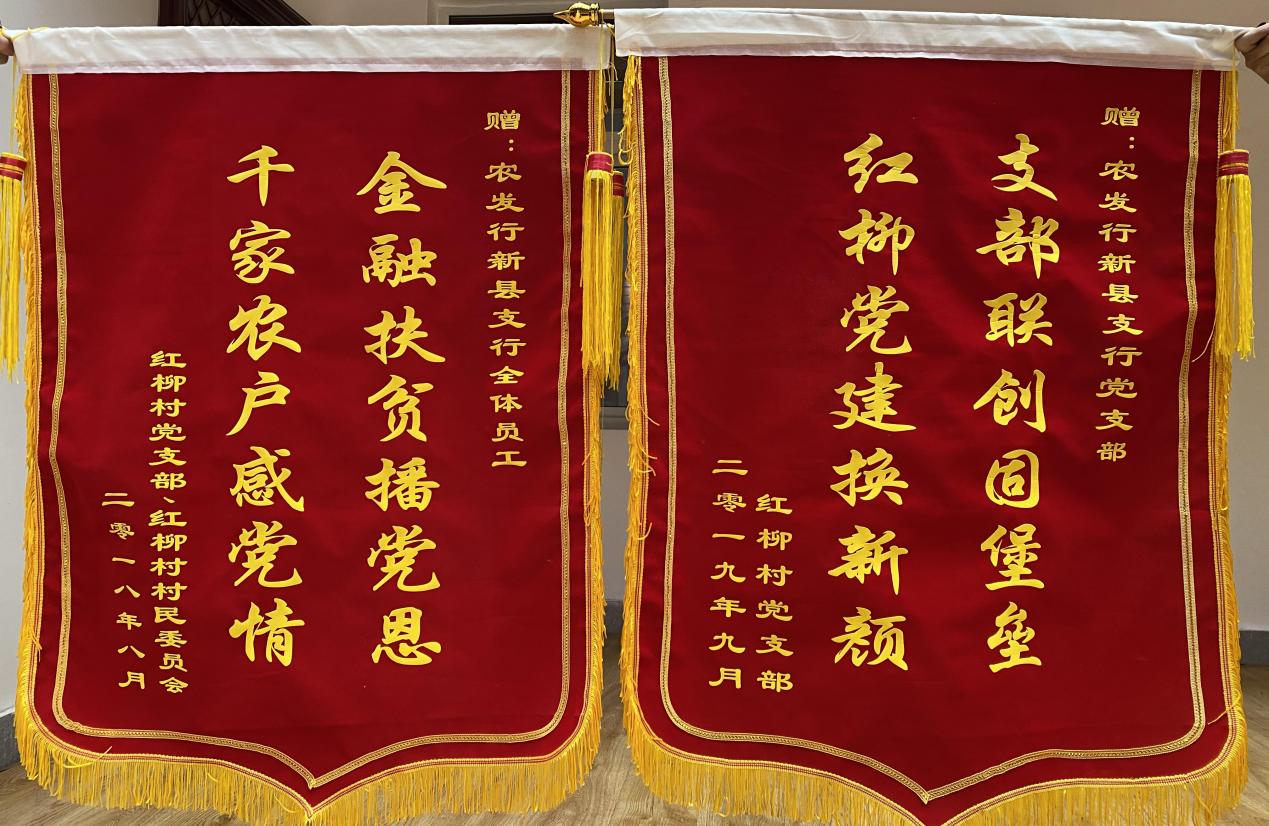 赠：农发行新县支行全体员工
金融扶贫播党恩
千家农户感党情
红柳村党支部、红柳村村民委员会
二零一八年八月
赠：农发行新县支行党支部
支部联创固堡垒
红柳党建换新颜
红柳村党支部
二零一九年九月